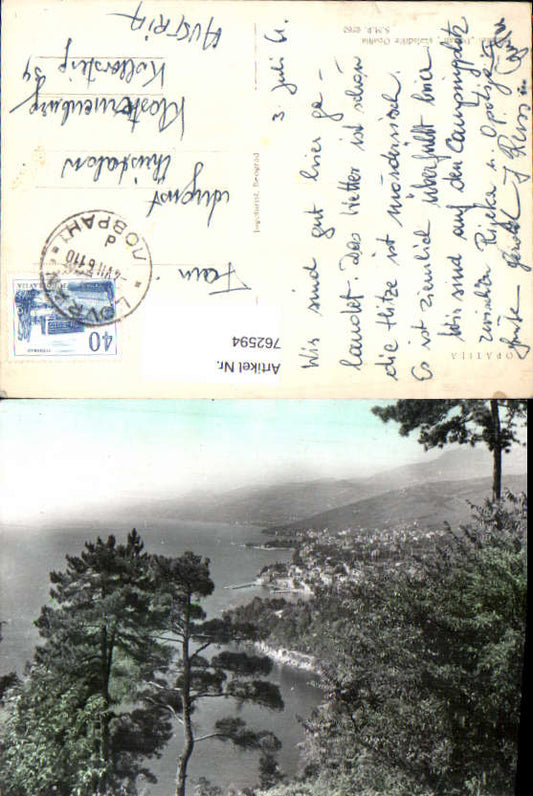 3. Juli 61.
Wir sind gut hier ge-
landet. Das Wetter ist schön
die Hitze ist mörderisch.
Es ist ziemlich überfüllt hier
Wir sind auf den Campingplatz
zwischen Rijeka u. Opatija
OPATIJA
S.M.B. 6760
Jugoturist, Beograd
Fam.
August
Klosterneuburg
AUSTRIA
LOVRAN
ЛОВРАН
4.VII.61 10
d
40
JUGOSLAVIJA
Artikel Nr.
762594